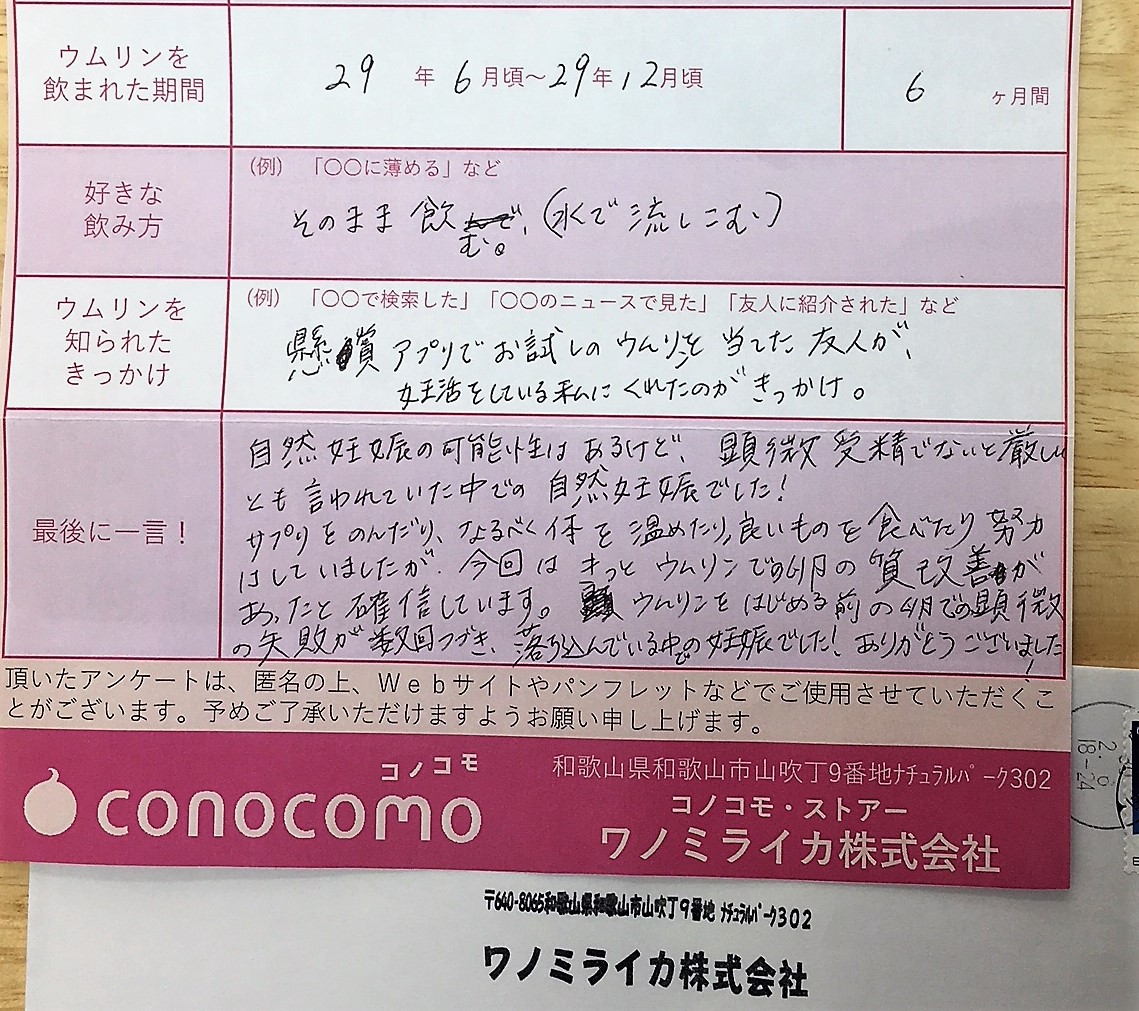 ウムリンを
飲まれた期間
29 年 6 月頃~29年12月頃
6 ヶ月間
好きな
飲み方
(例) 「〇〇に薄める」など
そのまま飲む。(水で流しこむ)
ウムリンを
知られた
きっかけ
(例) 「〇〇で検索した」「〇〇のニュースで見た」「友人に紹介された」など
懸賞アプリでお試しのウムリンを当てた友人が、
妊活をしている私にくれたのがきっかけ。
最後に一言!
自然妊娠の可能性はあるけど、顕微受精でないと厳しい
とも言われていた中での自然妊娠でした!
サプリをのんだり、なるべく体を温めたり、良いものを食べたり努力
はしていましたが、今回はきっとウムリンでの卵の質改善が
あったと確信しています。ウムリンをはじめる前の卵での顕微
の失敗が数回つづき、落ち込んでいる中での妊娠でした!ありがとうございました!
頂いたアンケートは、匿名の上、Webサイトやパンフレットなどでご使用させていただくこ
とがございます。予めご了承いただけますようお願い申し上げます。
コノコモ
conocomo
和歌山県和歌山市山吹丁9番地ナチュラルパーク302
コノコモ・ストアー
ワノミライカ株式会社
18-24
〒640-8065和歌山県和歌山市山吹丁9番地 ナチュラルパーク302
ワノミライカ株式会社